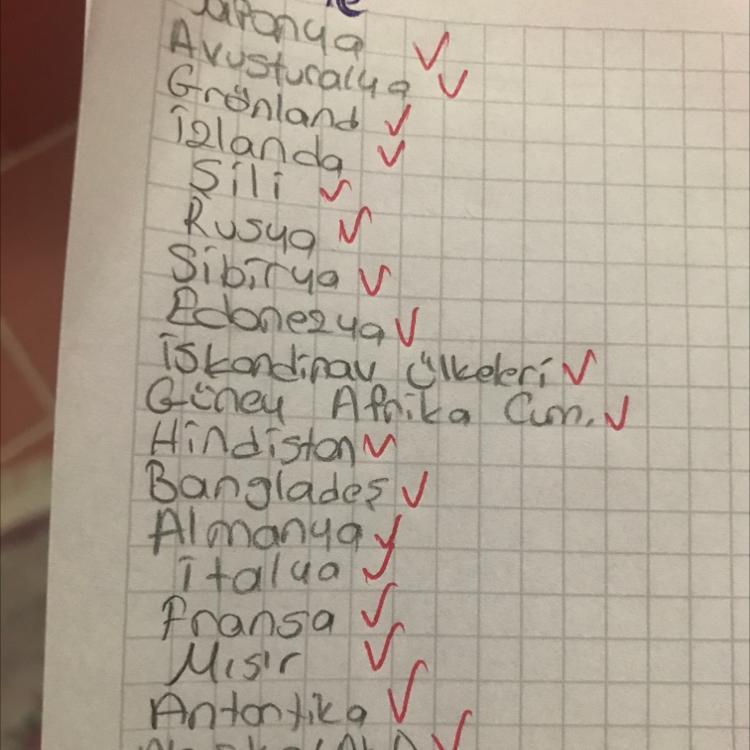 Japonya
Avusturalya
Grönland
İzlanda
Şili
Rusya
Sibirya
Edonezya
İskandinav Ülkeleri
Güney Afrika Cum.
Hindistan
Bangladeş
Almanya
İtalya
Fransa
Mısır
Antartika